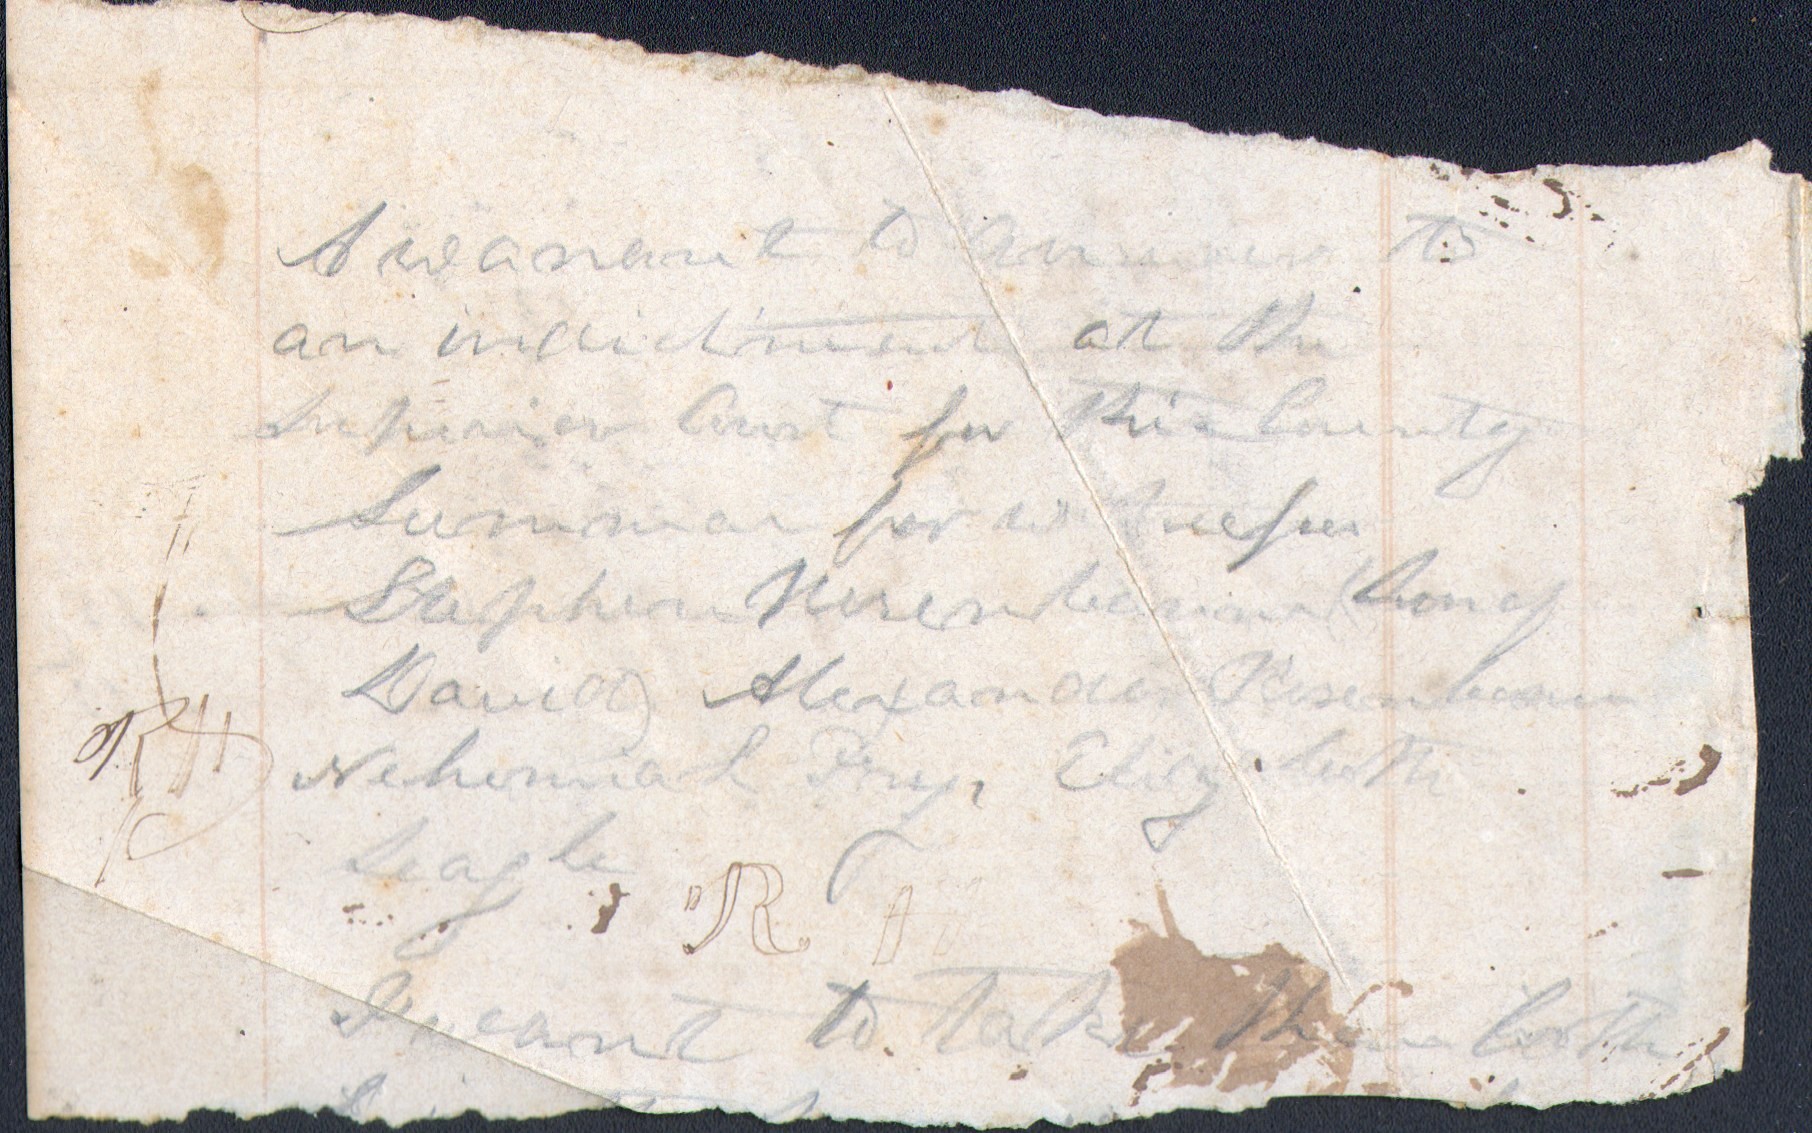 A warrant to answer to
an indictment at the
Superior Court for this County
Summon for witnesses
Stephen Rosenbaum (Son of
David) Alexander Rosenbaum
Nehemiah Fry, Elizabeth
Seagle
R H
R H
I want to take them both